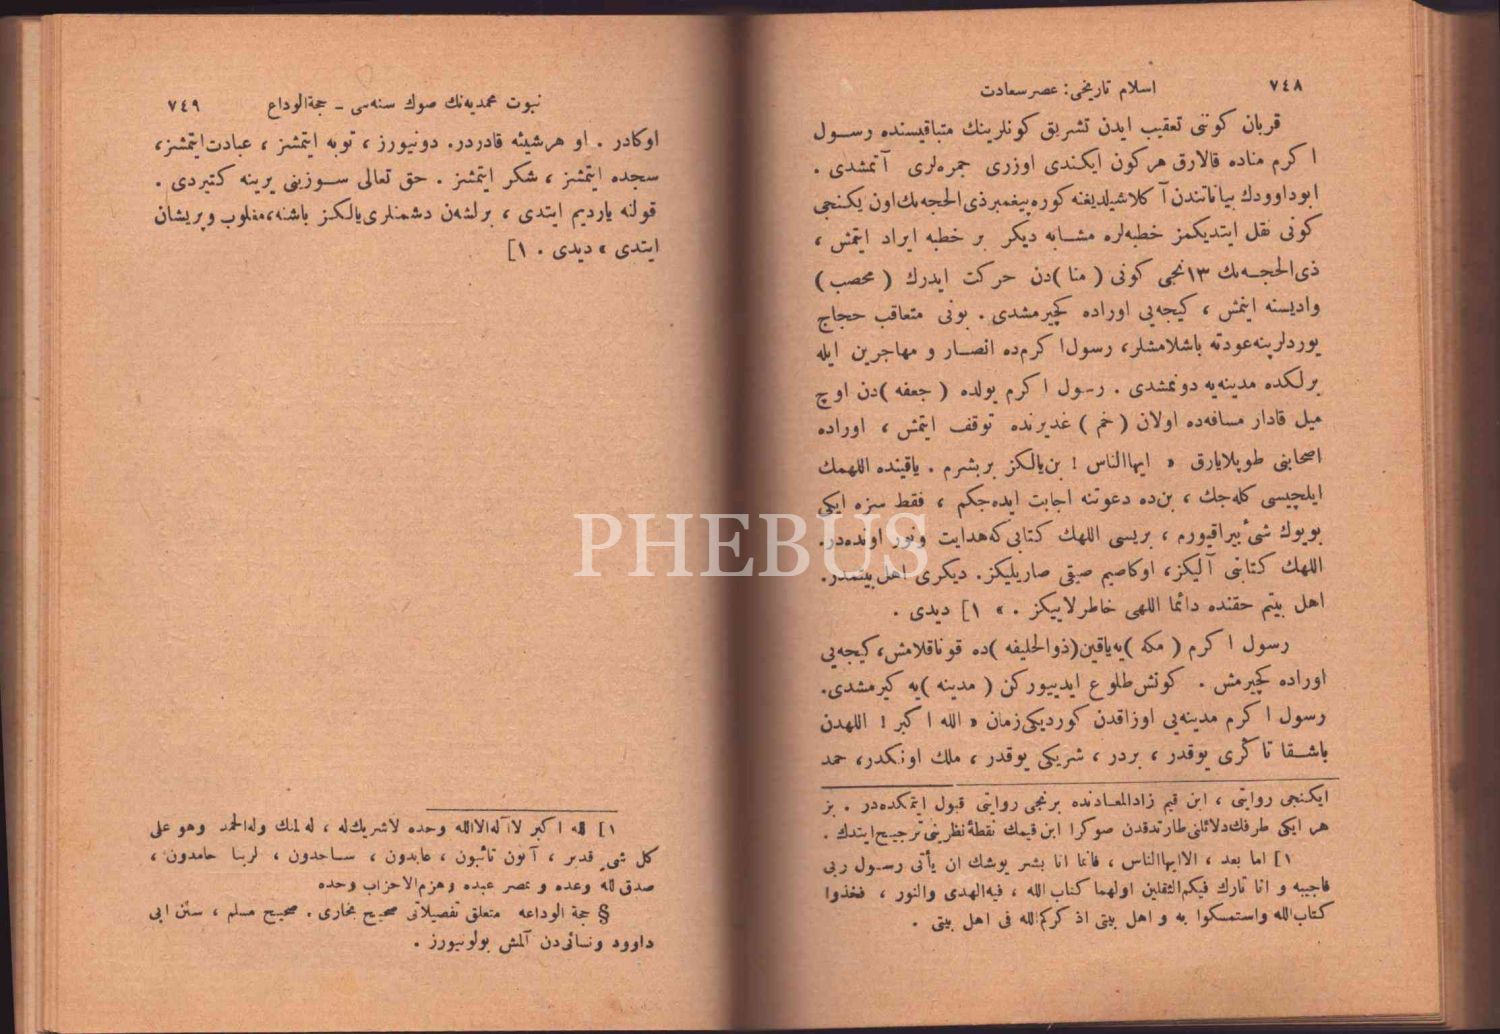 ٧٤٨ اسلام تاریخی: عصر سعادت
قربان كونى تعقیب ایدن تشریق كونلرینك متباقیسنده رسـول
اكرم مناده قالارق هركون ایكندى اوزرى جمره‌لرى آتمشدى .
ابوداوودك بیاناتندن آكلاشیلدیغنه كوره پیغمبر ذى‌الحجه‌نك اون یكنجى
كونى نقل ایتدیكمز خطبه‌لره مشـابه دیكر بر خطبه ایراد ایتمش ،
ذى‌الحجـه‌نك ١٣نجى كونى ( منا )دن حركت ایدرك ( محصب )
وادیسنه اینمش ، كیجه‌یى اوراده كچیرمشدى . بونى متعاقب حجاج
یوردلرینه عودته باشلامشلر، رسول اكرم‌ده انصـار و مهاجرین ایله
برلكده مدینه‌یه دونمشدى . رسول اكرم یولده ( جعفه )دن اوچ
میل قادار مسافه‌ده اولان ( خم ) غدیرنده توقف ایتمش ، اوراده
اصحابنى طوپلایارق « ایهاالناس ! بن یالكز بر بشرم . یاقینده اللهمك
ایلچیسى كله‌جك ، بن‌ده دعوتنه اجابت ایده‌جكم ، فقط سزه ایكى
بویوك شئ بیراقیورم ، بریسى اللهك كتابى كه هدایت ونور اونده‌در.
اللهك كتابنى آلیكز، اوكا صیم صیقى صاریلیكز. دیكرى اهل بیتمدر.
اهل بیتم حقنده دائما اللهى خاطرلاییكز . » ١] دیدى .
رسول اكرم ( مكه )یه یاقین (ذوالحلیفه )ده قوناقلامش، كیجه‌یى
اوراده كچیرمش . كونش طلوع ایدییوركن ( مدینه )یه كیرمشدى.
رسول اكرم مدینه‌یى اوزاقدن كوردیكى زمان « الله اكبر ! اللهدن
باشـقا تاكرى یوقدر ، بردر ، شریكى یوقدر ، ملك اونكدر، حمد
ایكنجى روایتى ، ابن قیم زادالمعـادنده برنجى روایتى قبول ایتمكده‌در . بز
هر ایكى طرفك دلائلنى طارتدقدن صوكرا ابن قیمك نقطۀ نظرینى ترجیح ایتدك .
١] اما بعد ، الا ایهاالناس ، فانما انا بشر یوشك ان یأتى رسـول ربى
فاجیبه و انا تارك فیكم‌الثقلین اولهما كتاب الله ، فیه‌الهدى والنور ، فخذوا
كتاب‌الله واستمسكوا به و اهل بیتى اذكركم‌الله فى اهل بیتى .
نبوت محمدیه‌نك صوك سنه‌سى ــ حجة‌الوداع ٧٤٩
اوكادر . او هر شیئه قادردر. دونیورز ، توبه ایتمشز ، عبادت ایتمشز،
سجده ایتمشز ، شكر ایتمشز . حق تعالى سـوزینى یرینه كتیردى .
قولنه یاردیم ایتدى ، برلشه‌ن دشمنلرى یالكز باشنه، مغلوب و پریشان
ایتدى » دیدى . ١]
١] الله اكبر لااله‌الاالله وحده لاشریك‌له ، له‌الملك وله‌الحمد وهو على
كل شئ قدیر ، آئبون تائبون ، عابدون ، سـاجدون ، لربنا حامدون ،
صدق الله وعده و نصر عبده وهزم‌الاحزاب وحده
§ حجة الوداعه متعلق تفصیلاتى صحیح بخارى . صحیح مسلم ، سنن ابى
داوود ونسائى‌دن آلمش بولونیورز .
PHEBUS